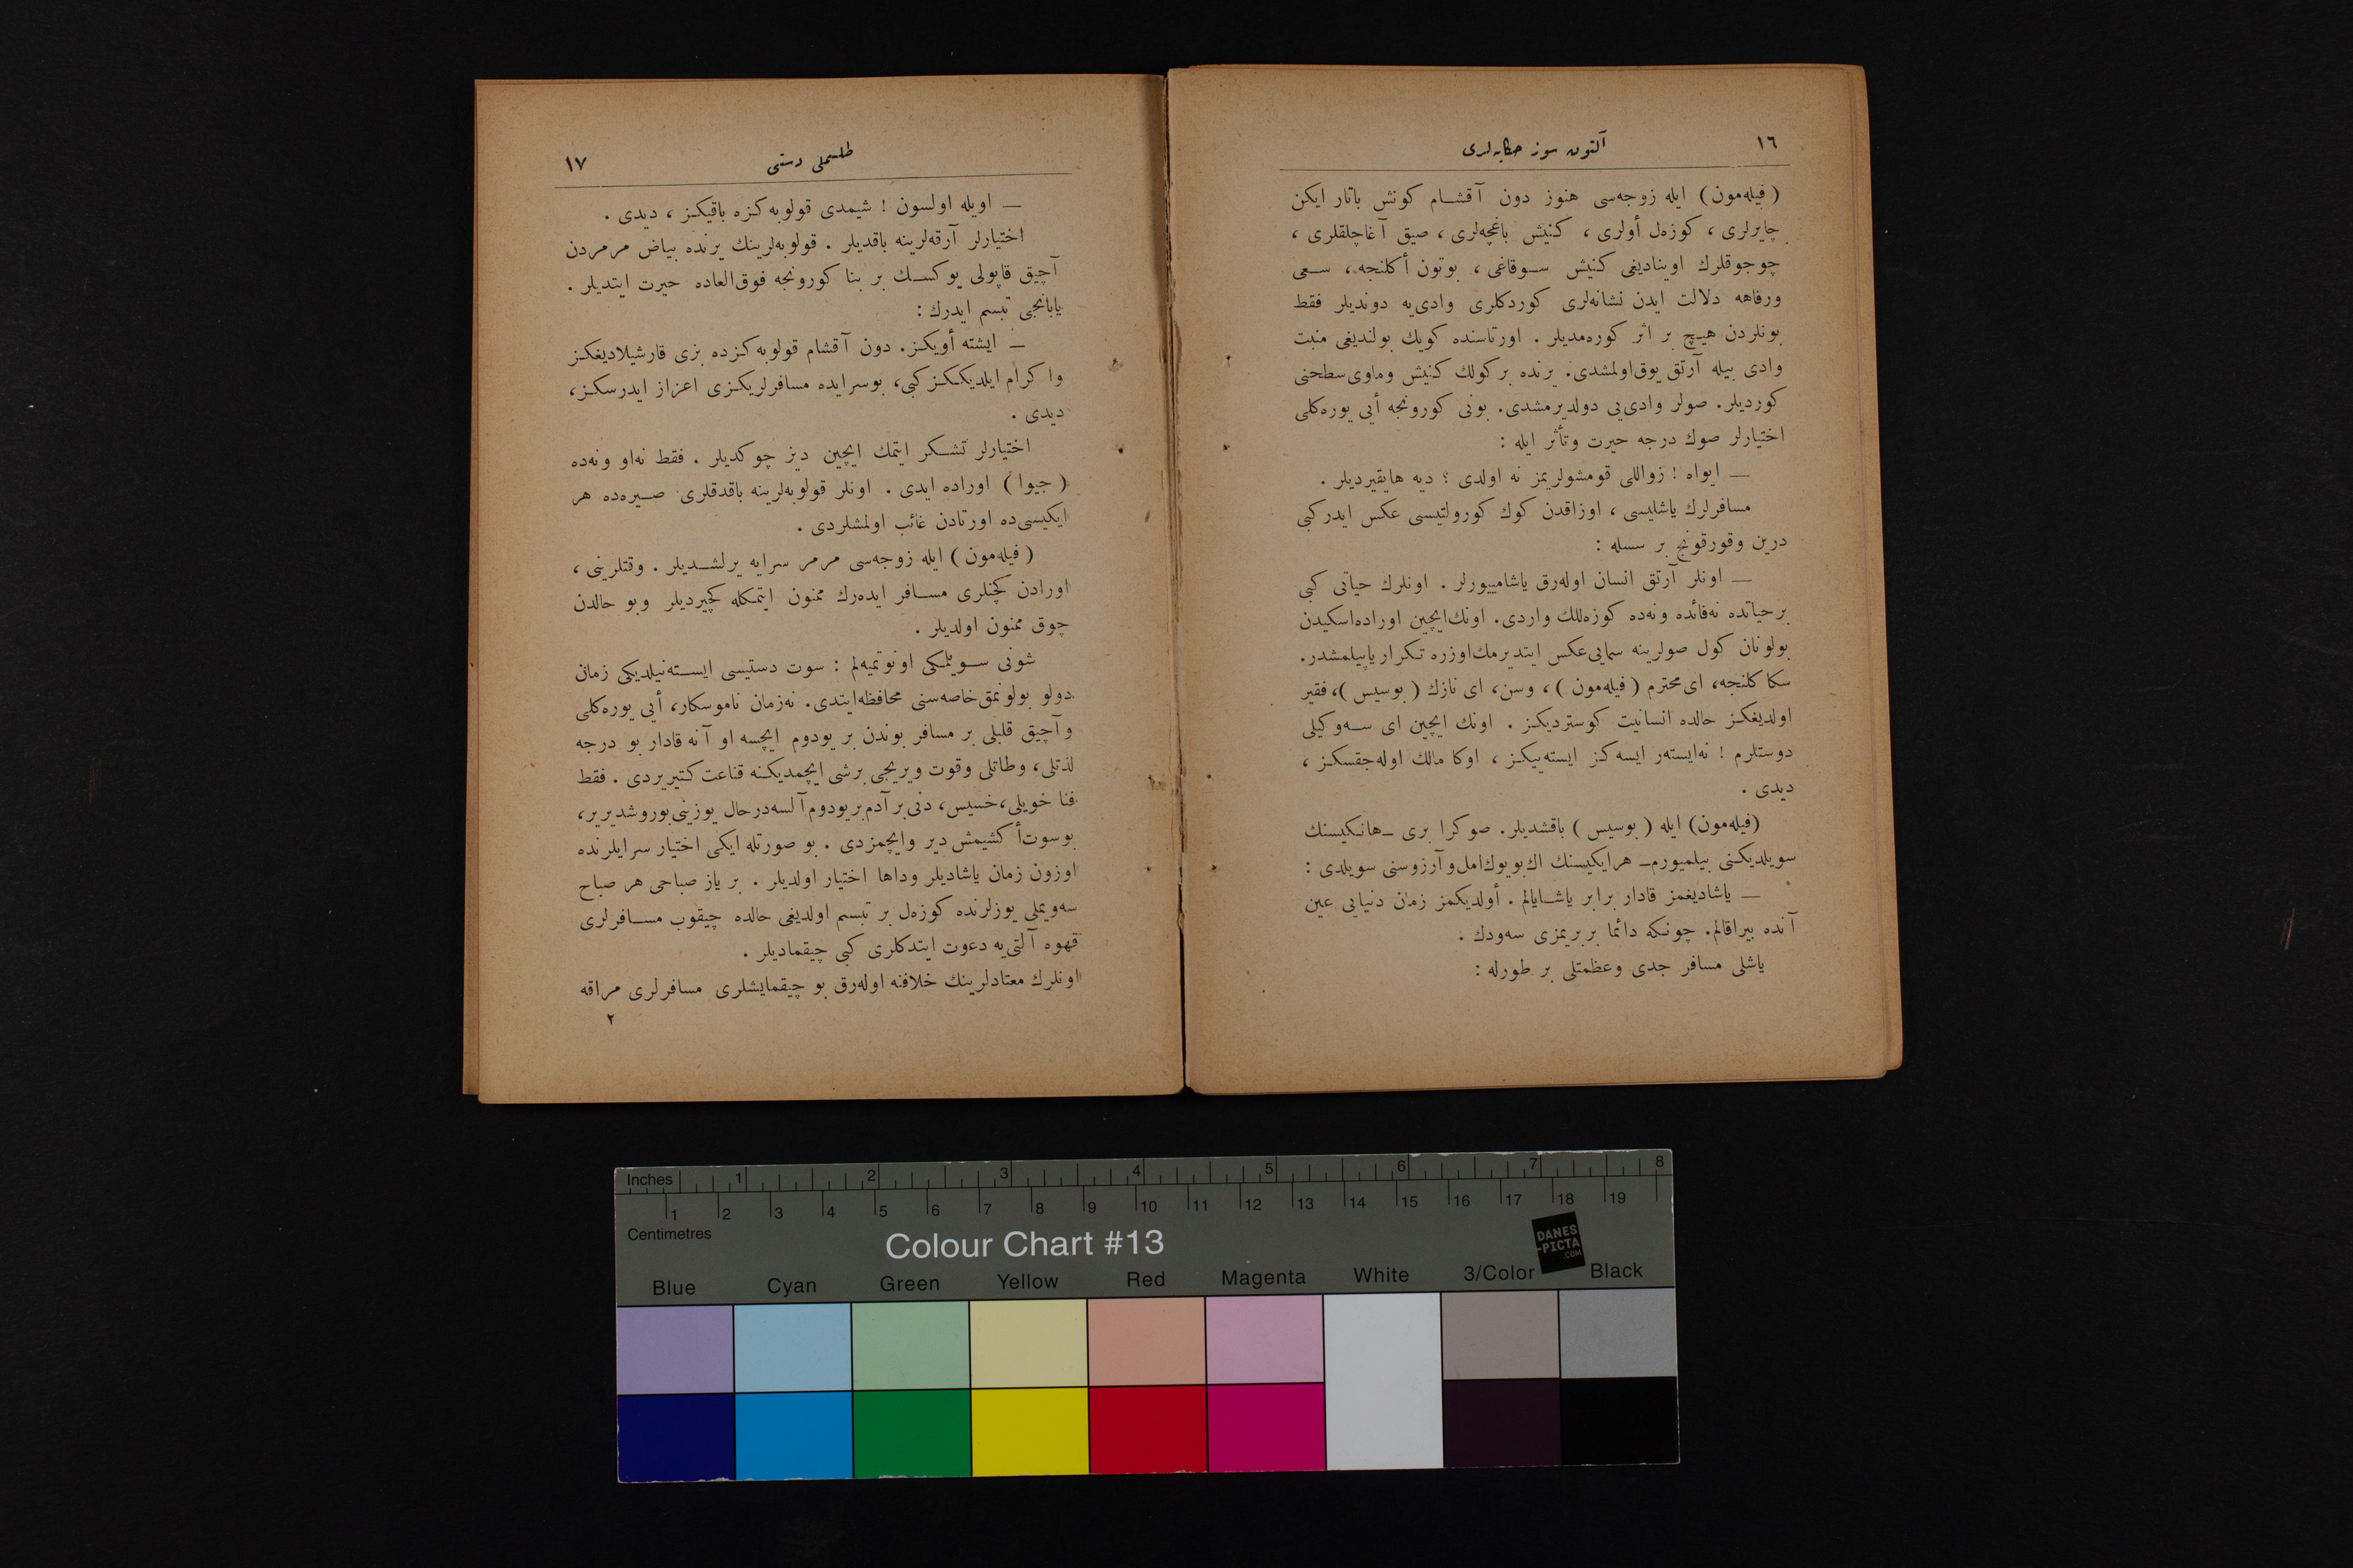 ١٦
آلتون سوز حكايه‌لری
(فيله‌مون) ايله زوجه‌سی هنوز دون آقشام كونش باتار ايكن
چايرلری ، كوزه‌ل أولری ، كنيش باغچه‌لری ، صيق آغاجلقلری ،
چوجوقلرك اوينادیغی كنيش سوقاغی ، بوتون أكلنجه ، سعی
ورفاهه دلالت ايدن نشانه‌لری كوردكلری وادی‌يه دونديلر فقط
بونلردن هيچ بر اثر كوره‌مديلر . اورتاسنده كويك بولنديغی منبت
وادی بيله آرتق يوق‌اولمشدی. يرنده بركولك كنيش وماوی‌سطحنی
كورديلر. صولر وادی‌یی دولديرمشدی. بونی كورونجه أیی يوره‌كلی
اختيارلر صوك درجه حيرت وتأثر ايله :
— ايواه ! زواللی قومشولريمز نه اولدی ؟ ديه هايقيرديلر .
مسافرلرك ياشليسی ، اوزاقدن كوك كورولتيسی عكس ايدر كبی
درين وقورقونج بر سسله :
— اونلر آرتق انسان اوله‌رق ياشامييورلر . اونلرك حياتی كبی
برحياتده نه‌فائده ونه‌ده كوزه‌للك واردی. اونك‌ايچين اوراده‌اسكيدن
بولونان كول صولرينه سمایی‌عكس ايتديرمك‌اوزره تكرار ياپيلمشدر.
سكا كلنجه، ای محترم (فيله‌مون) ، وسن، ای نازك (بوسيس)، فقير
اولديغكز حالده انسانيت كوسترديكز . اونك ايچين ای سه‌وكيلی
دوستلرم ! نه‌ايسته‌ر ايسه‌كز ايسته‌ييكز ، اوكا مالك اوله‌جقسكز ،
ديدی .
(فيله‌مون) ايله (بوسيس) باقشديلر. صوكرا بری —هانكيسنك
سويلديكنی بيلميورم— هرايكيسنك اك‌بويوك‌امل‌وآرزوسنی سويلدی :
— ياشاديغمز قادار برابر ياشايالم . أولديكمز زمان دنيایی عين
آنده بيراقالم. چونكه دائما بربريمزی سه‌ودك .
ياشلی مسافر جدی وعظمتلی بر طورله :
١٧
طلسملی دستی
— اويله اولسون ! شيمدی قولوبه‌كزه باقيكز ، ديدی .
اختيارلر آرقه‌لرينه باقديلر . قولوبه‌لرينك يرنده بياض مرمردن
آچيق قاپولی يوكسك بر بنا كورونجه فوق‌العاده حيرت ايتديلر .
يابانجی تبسم ايدرك :
— ايشته أويكز. دون آقشام قولوبه‌كزده بزی قارشيلاديغكز
واكرام ايلديككز كبی، بوسرايده مسافرلريكزی اعزاز ايدرسكز،
ديدی .
اختيارلر تشكر ايتمك ايچين ديز چوكديلر . فقط نه‌او ونه‌ده
(جيوا) اوراده ايدی . اونلر قولوبه‌لرينه باقدقلری صيره‌ده هر
ايكيسی‌ده اورتادن غائب اولمشلردی .
(فيله‌مون) ايله زوجه‌سی مرمر سرايه يرلشديلر . وقتلرينی ،
اورادن كچنلری مسافر ايده‌رك ممنون ايتمكله كچيرديلر وبو حالدن
چوق ممنون اولديلر .
شونی سويلمكی اونوتميه‌لم : سوت دستيسی ايسته‌نيلديكی زمان
دولو بولونمق‌خاصه‌سنی محافظه‌ايتدی. نه‌زمان ناموسكار، أیی يوره‌كلی
وآچيق قلبلی بر مسافر بوندن بر يودوم ايچسه او آنه قادار بو درجه
لذتلی، وطاتلی وقوت ويريجی برشی ايچمديكنه قناعت كتيريردی . فقط
فنا خويلی،خسيس، دنی برآدم بريودوم‌آلسه‌درحال يوزينی‌بوروشديرير،
بوسوت‌أكشيمش دير وايچمزدی . بو صورتله ايكی اختيار سرايلرنده
اوزون زمان ياشاديلر وداها اختيار اولديلر . بر ياز صباحی هر صباح
سه‌ويملی يوزلرنده كوزه‌ل بر تبسم اولديغی حالده چيقوب مسافرلری
قهوه آلتی‌يه دعوت ايتدكلری كبی چيقماديلر .
اونلرك معتادلرينك خلافنه اوله‌رق بو چيقمايشلری مسافرلری مراقه
٢
Inches 1 2 3 4 5 6 7 8
1 2 3 4 5 6 7 8 9 10 11 12 13 14 15 16 17 18 19
Centimetres
Colour Chart #13
DANES
-PICTA
.COM
Blue Cyan Green Yellow Red Magenta White 3/Color Black